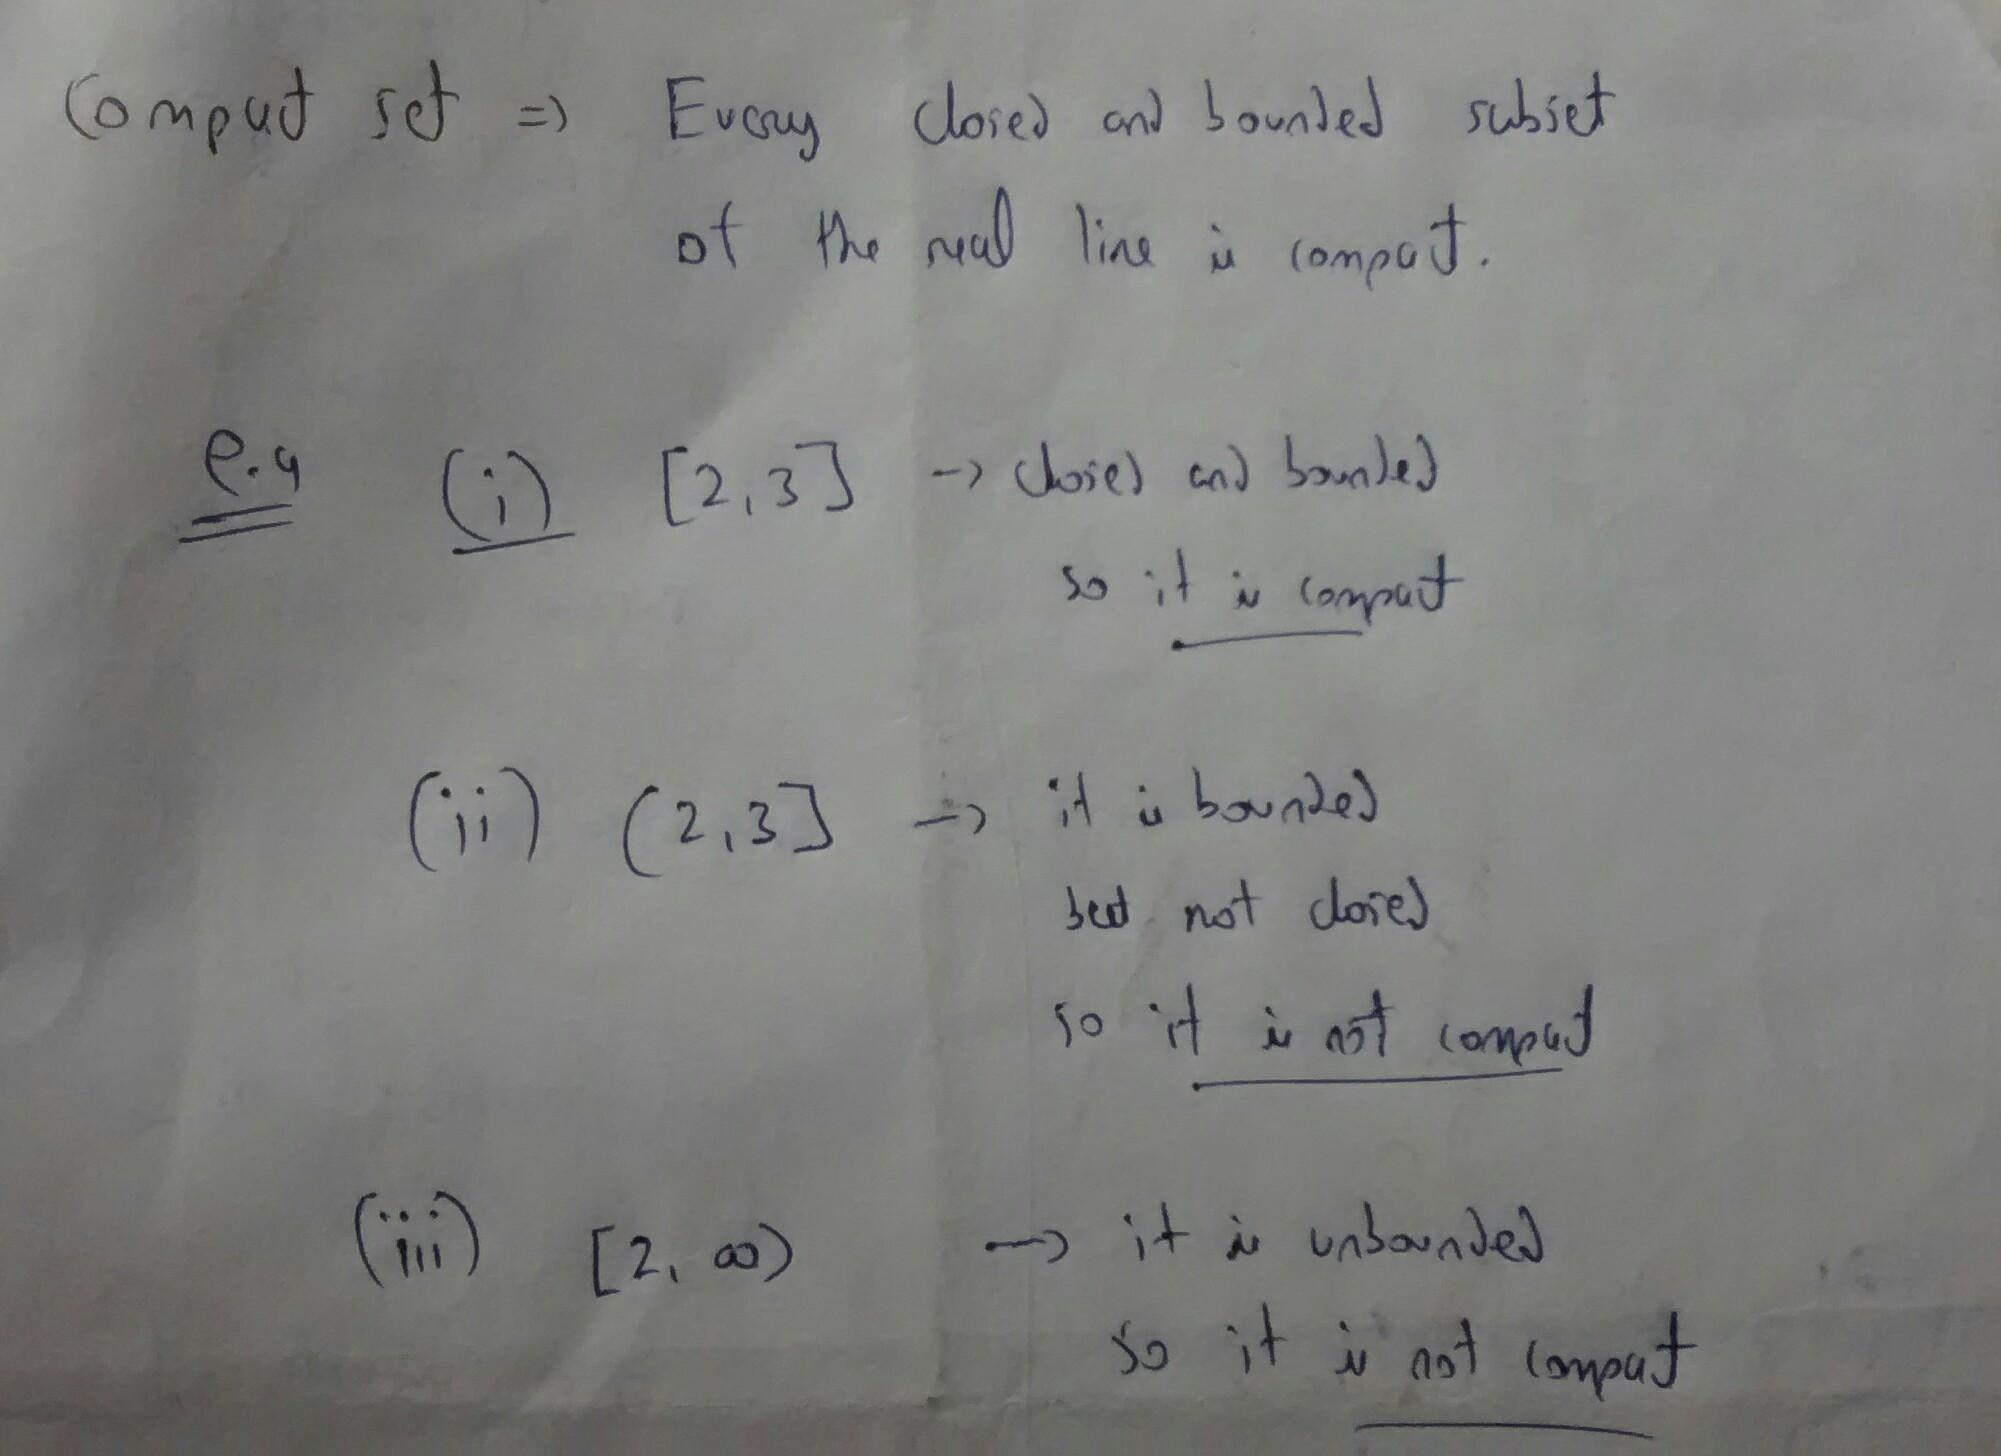 Compact set => Every closed and bounded subset
of the real line is compact.
e.g (i) [2,3] -> closed and bounded
so it is compact
(ii) (2,3] -> it is bounded
but not closed
so it is not compact
(iii) [2, ∞) -> it is unbounded
so it is not compact